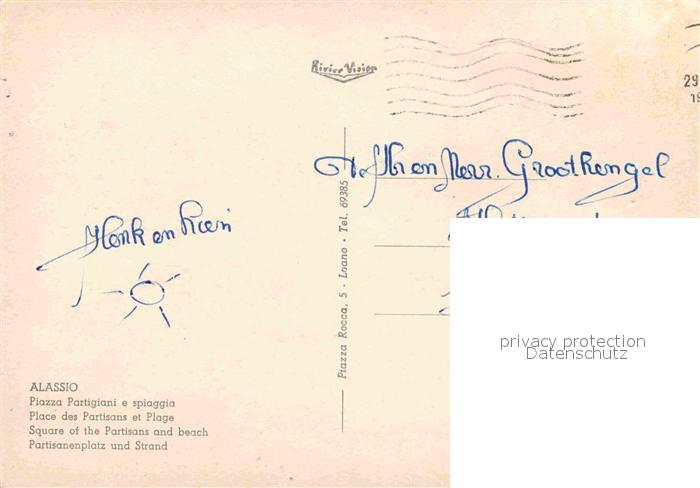 Riviera Vision
29
19
Groothengel
Henk en
Piazza Rocca, 5 - Loano - Tel. 69385
privacy protection
Datenschutz
ALASSIO
Piazza Partigiani e spiaggia
Place des Partisans et Plage
Square of the Partisans and beach
Partisanenplatz und Strand